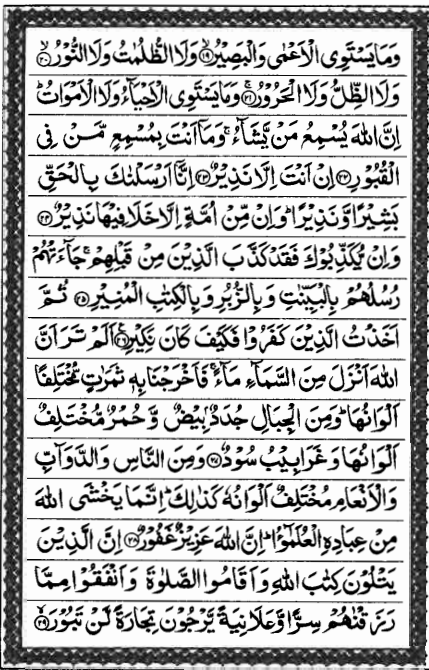 وَمَا يَسْتَوِى الْاَعْمٰى وَالْبَصِيْرُ ۙ﴿۱۹﴾ وَلَا الظُّلُمٰتُ وَلَا النُّوْرُ ۙ﴿۲۰﴾
وَلَا الظِّلُّ وَلَا الْحَرُوْرُ ۚ﴿۲۱﴾ وَمَا يَسْتَوِى الْاَحْيَآءُ وَلَا الْاَمْوَاتُ ؕ
اِنَّ اللّٰهَ يُسْمِعُ مَنْ يَّشَآءُ ۚ وَمَاۤ اَنْتَ بِمُسْمِعٍ مَّنْ فِى
الْقُبُوْرِ ﴿۲۲﴾ اِنْ اَنْتَ اِلَّا نَذِيْرٌ ﴿۲۳﴾ اِنَّاۤ اَرْسَلْنٰكَ بِالْحَقِّ
بَشِيْرًا وَّنَذِيْرًا ؕ وَاِنْ مِّنْ اُمَّةٍ اِلَّا خَلَا فِيْهَا نَذِيْرٌ ﴿۲۴﴾
وَاِنْ يُّكَذِّبُوْكَ فَقَدْ كَذَّبَ الَّذِيْنَ مِنْ قَبْلِهِمْ ۚ جَآءَتْهُمْ
رُسُلُهُمْ بِالْبَيِّنٰتِ وَبِالزُّبُرِ وَبِالْكِتٰبِ الْمُنِيْرِ ﴿۲۵﴾ ثُمَّ
اَخَذْتُ الَّذِيْنَ كَفَرُوْا فَكَيْفَ كَانَ نَكِيْرِ ﴿۲۶﴾ اَلَمْ تَرَ اَنَّ
اللّٰهَ اَنْزَلَ مِنَ السَّمَآءِ مَآءً ۚ فَاَخْرَجْنَا بِهٖ ثَمَرٰتٍ مُّخْتَلِفًا
اَلْوَانُهَا ؕ وَمِنَ الْجِبَالِ جُدَدٌۢ بِيْضٌ وَّحُمْرٌ مُّخْتَلِفٌ
اَلْوَانُهَا وَغَرَابِيْبُ سُوْدٌ ﴿۲۷﴾ وَمِنَ النَّاسِ وَالدَّوَآبِّ
وَالْاَنْعَامِ مُخْتَلِفٌ اَلْوَانُهٗ كَذٰلِكَ ؕ اِنَّمَا يَخْشَى اللّٰهَ
مِنْ عِبَادِهِ الْعُلَمٰٓؤُا ؕ اِنَّ اللّٰهَ عَزِيْزٌ غَفُوْرٌ ﴿۲۸﴾ اِنَّ الَّذِيْنَ
يَتْلُوْنَ كِتٰبَ اللّٰهِ وَاَقَامُوا الصَّلٰوةَ وَاَنْفَقُوْا مِمَّا
رَزَقْنٰهُمْ سِرًّا وَّعَلَانِيَةً يَّرْجُوْنَ تِجَارَةً لَّنْ تَبُوْرَ ۙ﴿۲۹﴾